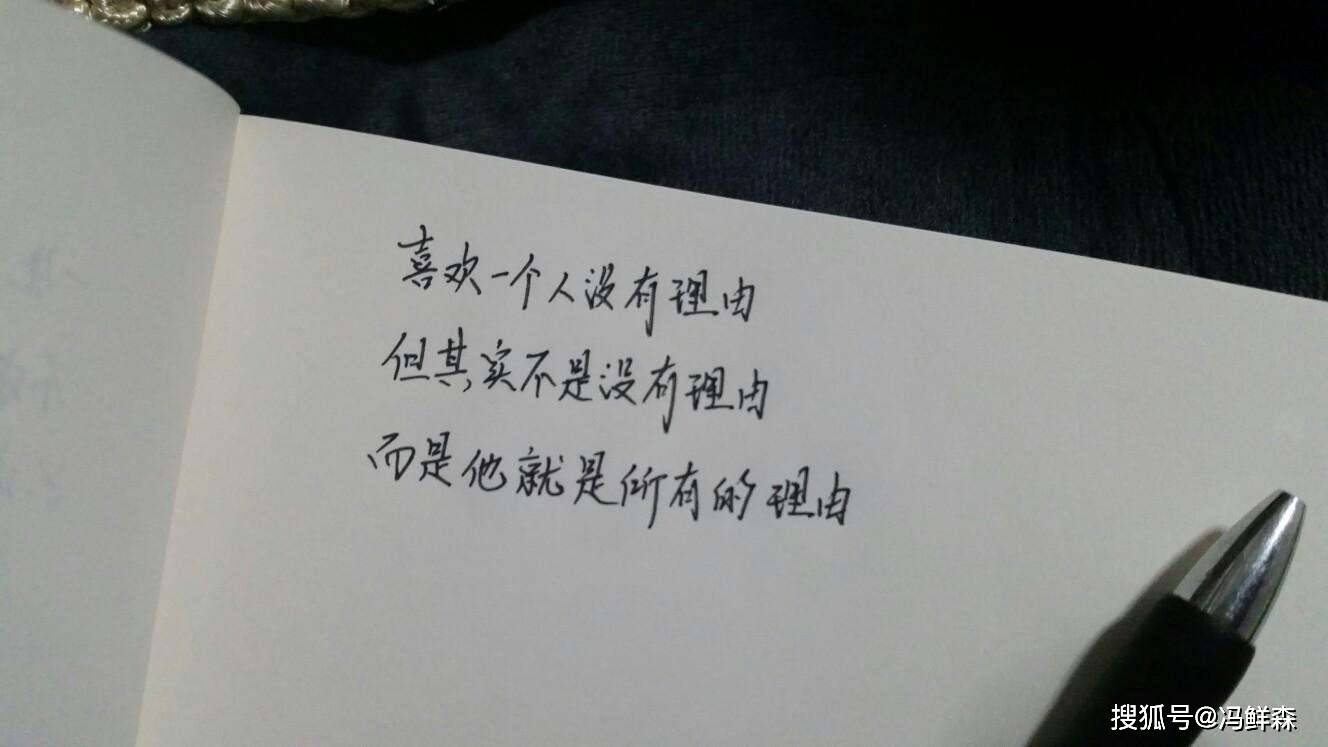 喜欢一个人没有理由
但其实不是没有理由
而是他就是所有的理由
搜狐号@冯鲜森